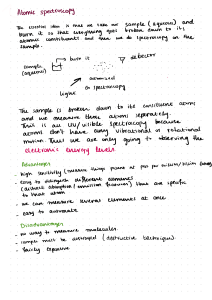 Atomic spectroscopy
The essential idea is that we take our sample (aqueous) and
burn it so that everything gets broken down to its
atomic constituents and then we do spectroscopy on the
sample.
sample
(aqueous)
burn it
detector
atomized
Light
spectroscopy
The sample is broken down to its constituent atoms
and we measure these atoms separately.
This is all UV/visible spectroscopy because
atoms don't have any vibrational or rotational
motion thus we are only going to observing the
electronic energy levels
Advantages
- high sensitivity (
- easy to distinguish different elements
(distinct absorption / emission) that are specific
to that atom
- we can measure several elements at once
- easy to automate
Disadvantages
- no way to measure molecules.
- sample must be destroyed (destructive technique)
- fairly expensive